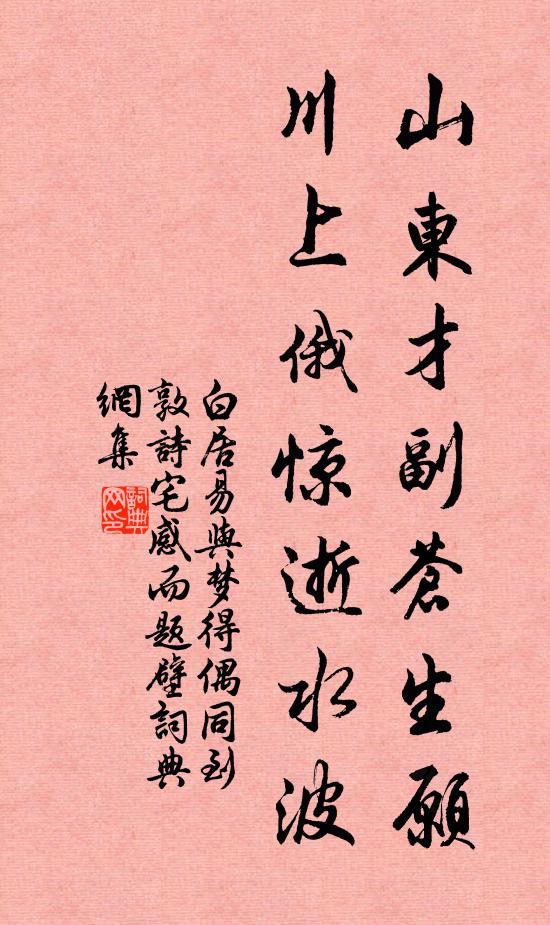 山東才副蒼生願
川上俄惊逝水波
白居易與梦得偶同到
敦詩宅感而题壁詞典
網集
詞典网印